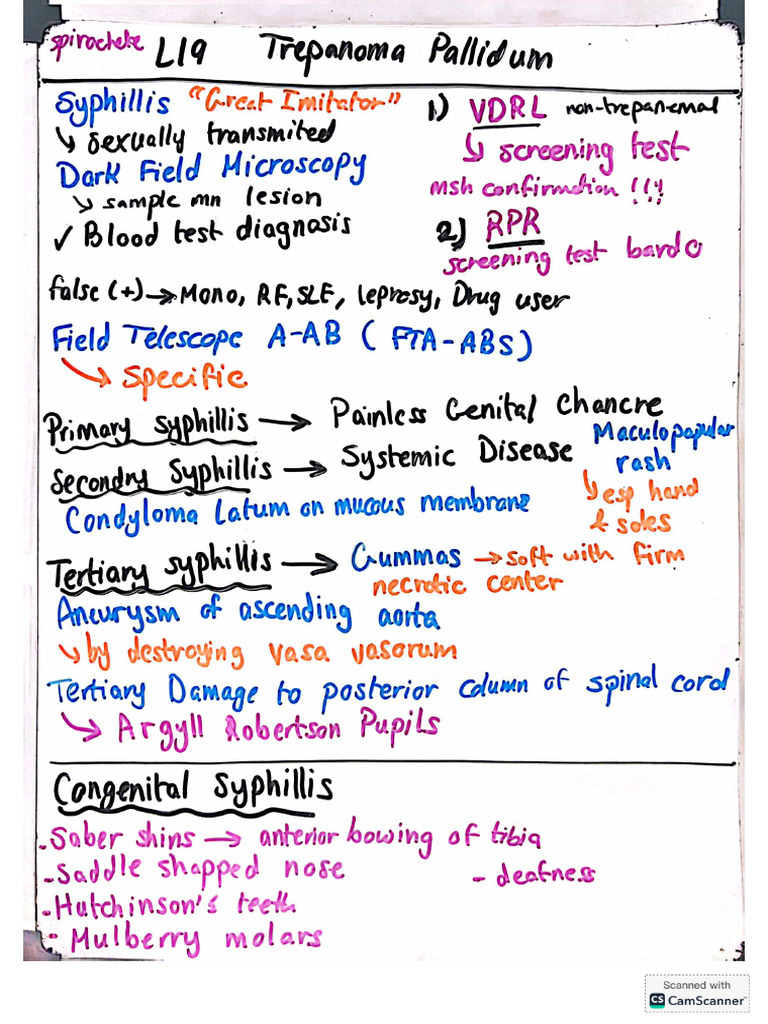 spirochete L19 Trepanoma Pallidum
Syphillis "Great Imitator"
↳ sexually transmited
Dark Field Microscopy
↳ sample mn lesion
✓ Blood test diagnosis
1) VDRL non-trepanemal
↳ screening test
msh confirmation !!!
2) RPR
screening test bardo
false (+) → Mono, RF, SLE, leprosy, Drug user
Field Telescope A-AB ( FTA-ABS)
↳ Specific
Primary syphillis → Painless Genital Chancre
Secondry Syphillis → Systemic Disease
Maculopapular
rash
↳ esp hand
& soles
Condyloma Latum on mucous membrane
Tertiary syphillis → Gummas → soft with firm
necrotic center
Aneurysm of ascending aorta
↳ by destroying vasa vasorum
Tertiary Damage to posterior column of spinal cord
↳ Argyll Robertson Pupils
Congenital Syphillis
- Saber shins → anterior bowing of tibia
- Saddle shapped nose
- deafness
- Hutchinson's teeth
- Mulberry molars
Scanned with
CS CamScanner